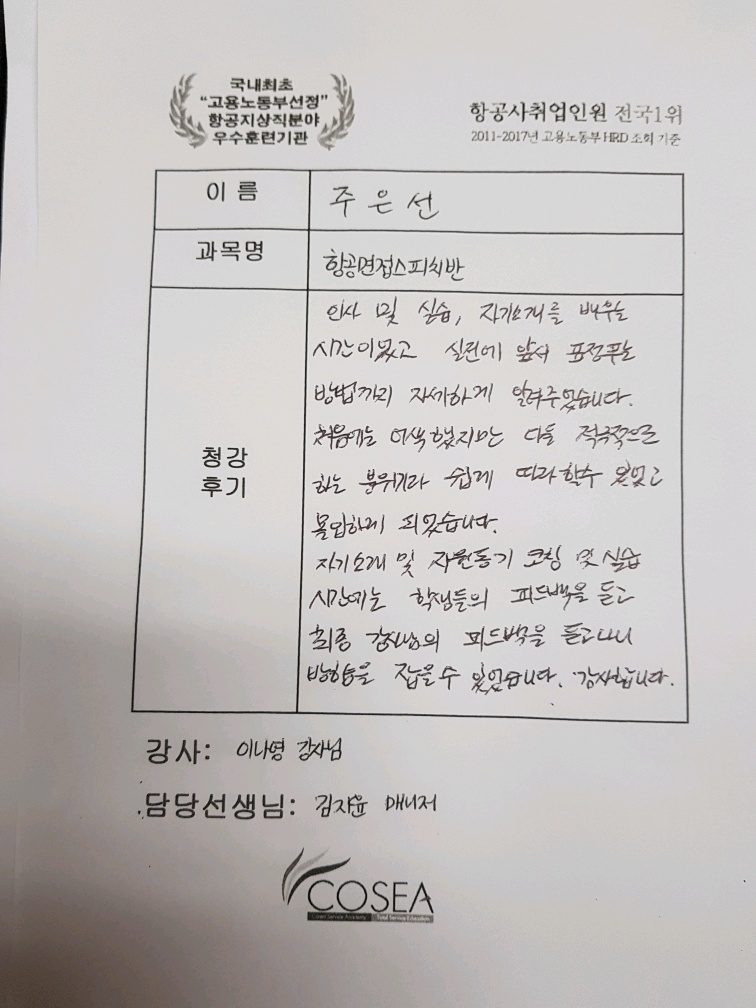 국내최초
"고용노동부선정"
항공지상직분야
우수훈련기관
항공사취업인원 전국1위
2011-2017년 고용노동부 HRD 조회 기준
이 름
주 은 선
과목명
항공면접스피치반
청강
후기
인사 및 실습, 자기소개를 배우는
시간이였고 실전에 앞서 표정푸는
방법까지 자세하게 알려주었습니다.
처음에는 어색했지만 다들 적극적으로
하는 분위기라 쉽게 따라할수 있었고
몰입하게 되었습니다.
자기소개 및 지원동기 코칭 및 실습
시간에는 학생들의 피드백을 듣고
최종 강사님의 피드백을 듣고나니
방향을 잡을수 있었습니다. 감사합니다.
강사: 이나영 강사님
담당선생님: 김지윤 매니저
COSEA
Total Service Education